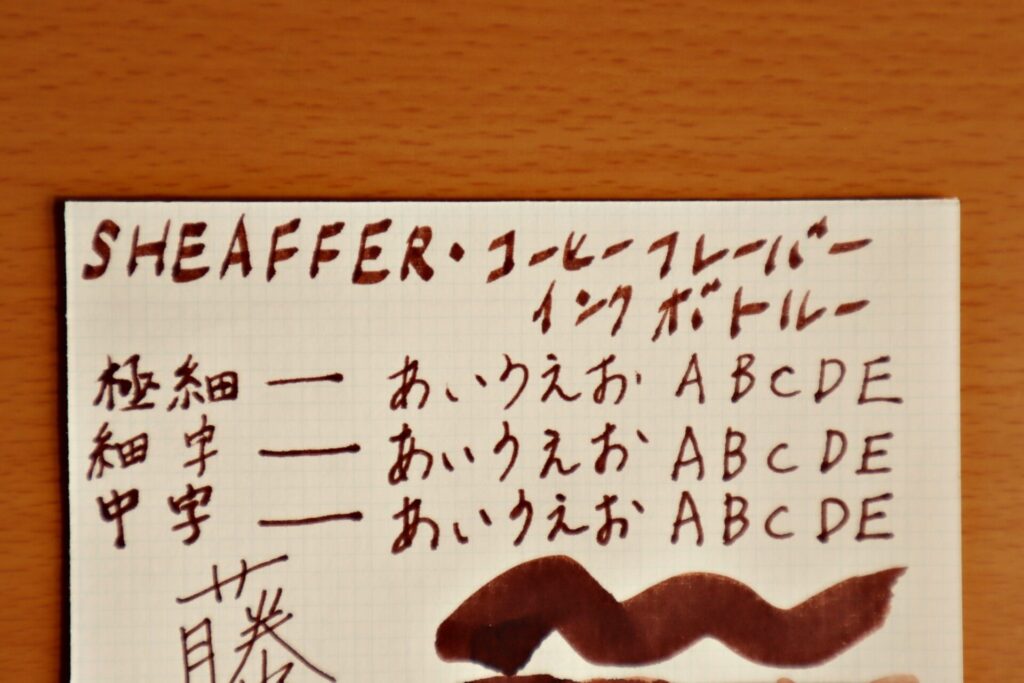 SHEAFFER・コーヒーフレーバー
インクボトルー
極細 ー あいうえお ABCDE
細字 ー あいうえお ABCDE
中字 ー あいうえお ABCDE
藤